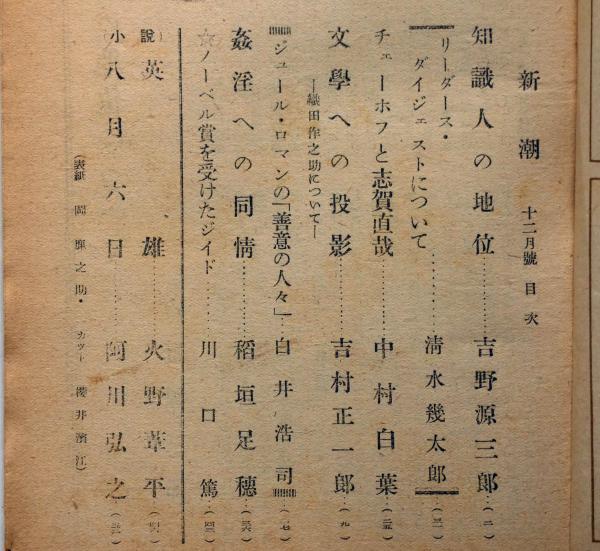 新潮 十二月號 目次
知識人の地位………吉野源三郎…(二)
リーダース・
ダイジェストについて………清水幾太郎…(三)
チェーホフと志賀直哉………中村白葉…(三五)
文學への投影………吉村正一郎…(九)
—織田作之助について—
ジュール・ロマンの「善意の人々」…白井浩司…(一七)
姦淫への同情………稻垣足穗…(三六)
☆ノーベル賞を受けたジイド………川口篤…(四三)
(說 英雄………火野葦平…
小) 八月六日………阿川弘之…
(表紙 岡鹿之助・カット 櫻井濱江)